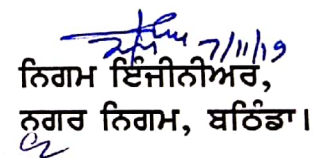 7/11/19
ਨਿਗਮ ਇੰਜੀਨੀਅਰ,
ਨਗਰ ਨਿਗਮ, ਬਠਿੰਡਾ।